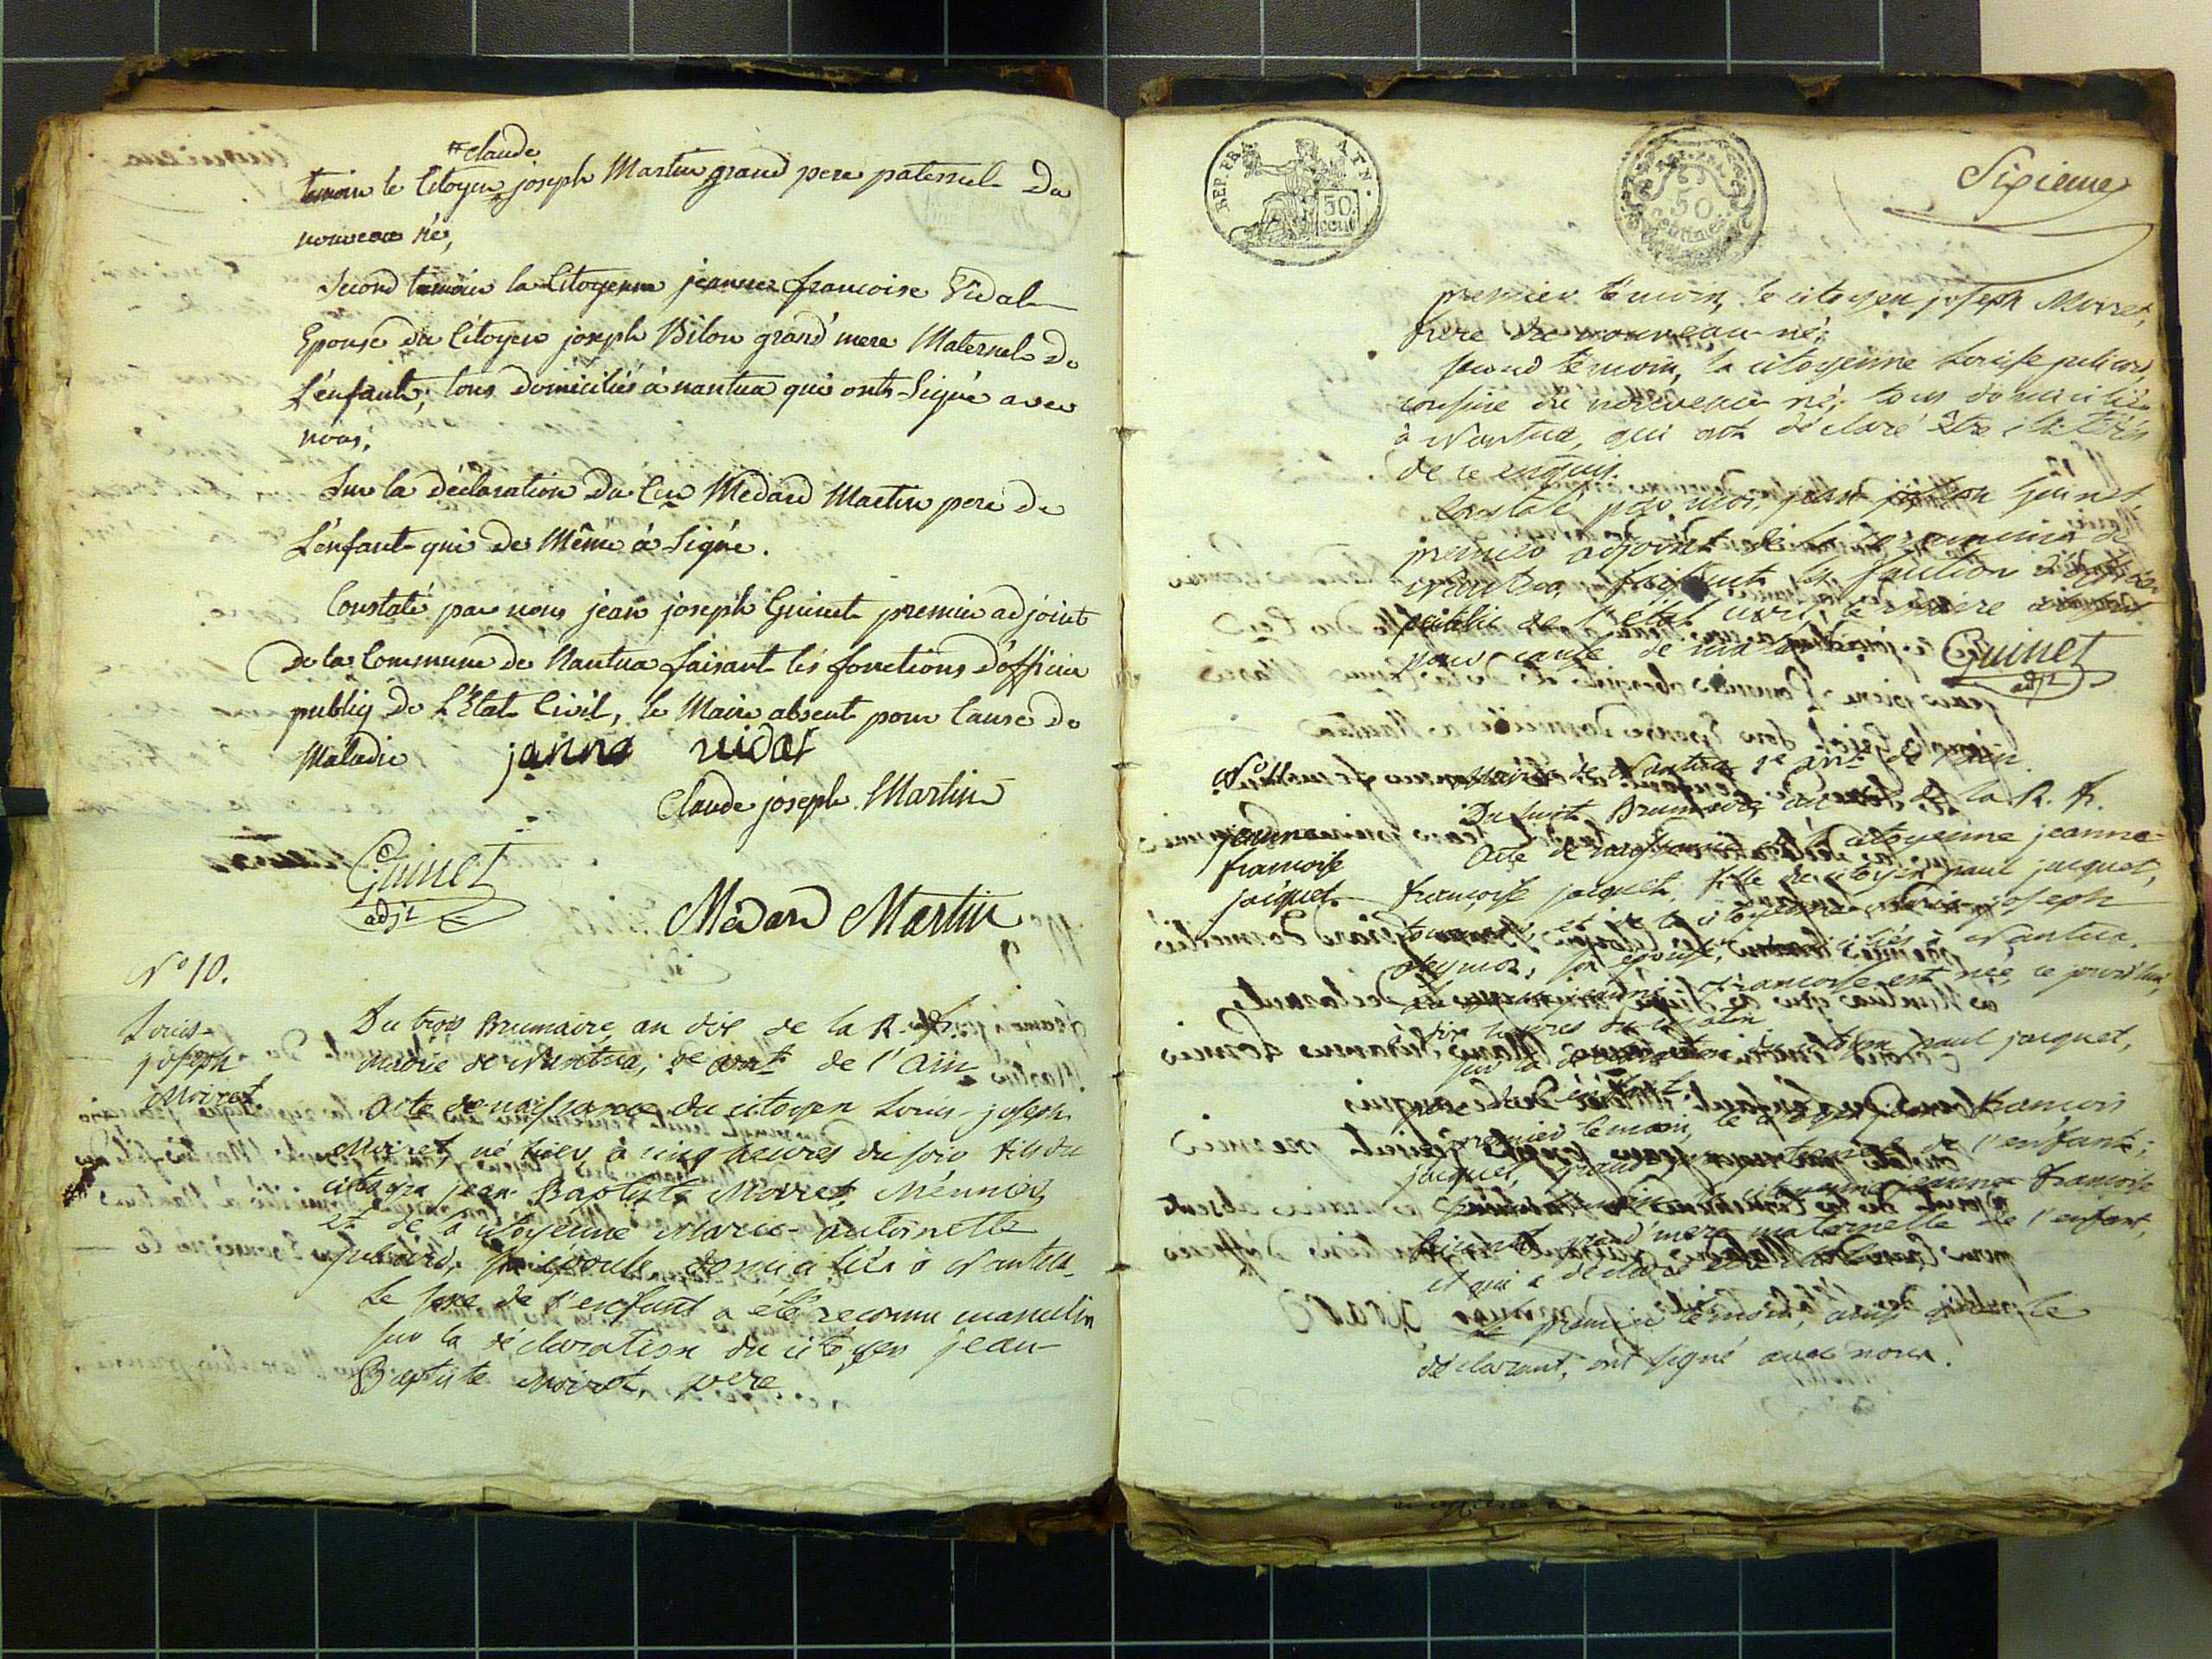 claude
temoin le Citoyen joseph Martin grand pere paternel du
nouveau né,
Second temoin la Citoyenne jeanne francoise Vidal
Epouse du Citoyen joseph Bilon grand'mere Maternel de
L'enfant; tous domiciliés à nantua qui onts Signé avec
nous,
Sur la déclaration du Cen Medard Martin pere de
L'enfant qui de Même à Signé.
Constaté par nous jean joseph Guinet premier adjoint
de la Commune de Nantua faisant les fonctions d'officier
publiq de L'Etat Civil, le Maire absent pour Cause de
Maladie janne vidal
Claude joseph Martin
Guinet
adjt
Médard Martin
N° 10.
Louis-
joseph
Moiret
Du trois Brumaire, an dix de la R. fr.
mairie de Nantua, de l'Ain
Acte de naissance du citoyen Louis-joseph
Moiret, né hier, à cinq heures du soir fils du
citoyen jean-Baptiste Moiret, Meûnier,
et de la citoyenne Marie-antoinette
juliard, son épouse, domiciliés à Nantua.
Le sexe de l'enfant a été reconnu masculin
sur la déclaration du citoyen jean-
Baptiste Moiret, pere
REP. FRA. 50 cent
50 centimes
Sixieme
premier témoin, le citoyen joseph Moiret,
frere du nouveau-né;
second témoin, la citoyenne Louise juliard,
cousine du nouveau né; tous domiciliés
à Nantua, qui ont déclaré être illitérés
de ce enquis.
Constaté par moi, jean joseph Guinet,
premier adjoint de la commune de
Nantua, faisant la fonction d'officier
public de l'état civil, le maire absent
pour cause de maladie
Guinet
adjt
N° 11.
jeanne
francoise
jacquet.
Mairie de Nantua, de l'ain
Du huit Brumaire an de la R. fr.
Acte de naissance de la citoyenne jeanne-
francoise jacquet, fille du citoyen paul jacquet,
et de la citoyenne joseph
son épouse, domiciliés à Nantua.
jeanne francoise est née ce jourd'hui,
à dix heures du matin
sur la déclaration du citoyen paul jacquet,
pere de l'enfant.
premier témoin, le citoyen françois
jacquet, grand de l'enfant;
second témoin, la citoyenne jeanne francoise
grand'mere maternelle de l'enfant,
et qui a déclaré
Le premier témoin, ainsi que le
déclarant, ont signé avec nous.